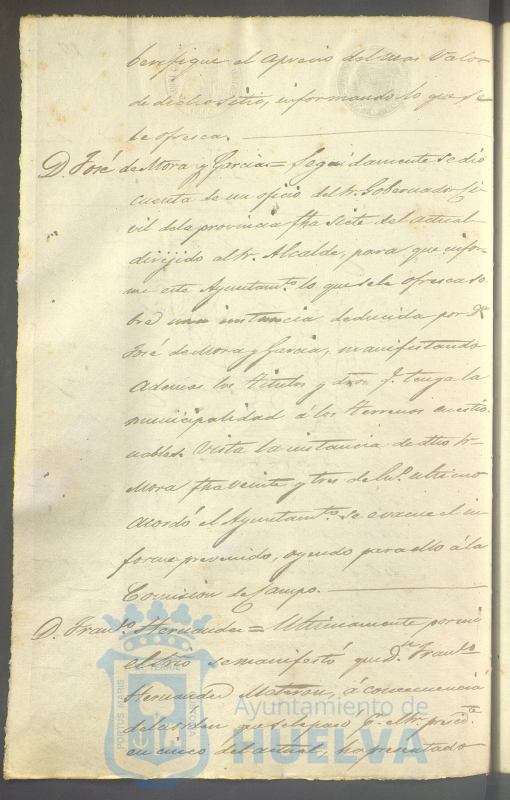 berifique el aprecio del mas valor
de dicho sitio, informando lo que se
le ofresca.
D. José de Mora y Garcia = Seguidamente se dió
cuenta de un oficio del Sr. Gobernador Ci-
vil de la provincia fha siete del actual
dirijido al Sr. Alcalde, para que infor-
me este Ayuntamto. lo que se le ofresca so
bre una instancia deducida por Dn
José de Mora y Garcia, manifestando
Ademas los titulos y dros q. tenga la
municipalidad á los terrenos cuestio
nables. Vista la instancia de dho Sr
Mora fha veinte y tres de ultimo
acordó el Ayuntamto. se evacue el in
forme prevenido, oyendo para ello á la
Comision de Campo.
D. Franco. Hernandez = Ultimamente por mi
el Srio se manifestó que Dn Franco
Hernandez á consecuencia
de la orden que se le pasó p. el Sr. presidte.
en cinco del actual, ha presentado
PORTUS MARIS
Ayuntamiento de
HUELVA